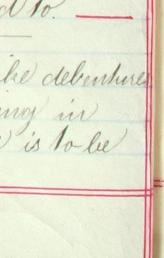 d to.
ike debentures
ing in
is to be